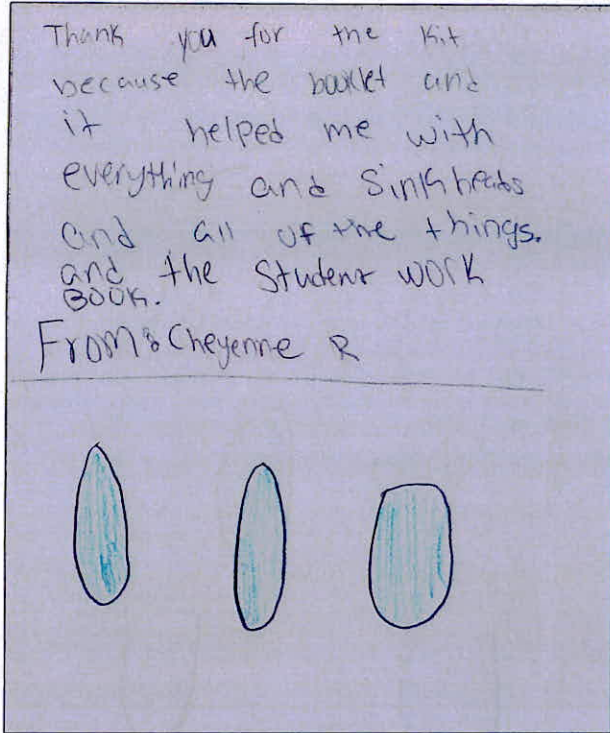 Thank you for the Kit
because the booklet and
it helped me with
everything and Sinkheads
and all of the things.
and the Student work
BOOK.
From: Cheyenne R